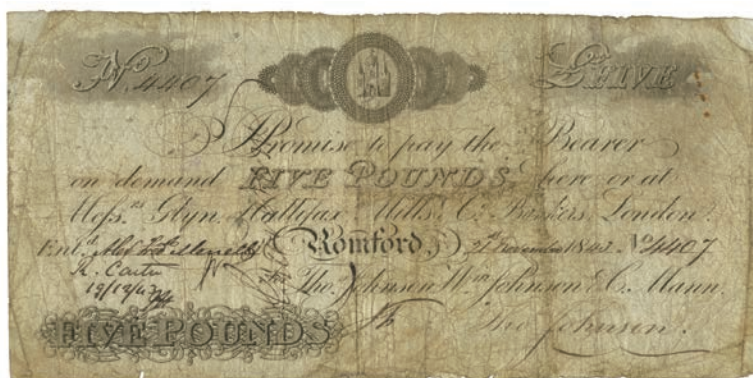 No. 4407 £FIVE
I Promise to pay the Bearer
on demand FIVE POUNDS, here or at
Mess.rs Glyn, Hallifax, Mills & Co. Bankers, London.
Ent.d Romford, 21st November 1843 No 4407
R. Carter
19/12/43
For Tho.s Johnson, Wm Johnson & C. Mann.
FIVE POUNDS Tho Johnson.